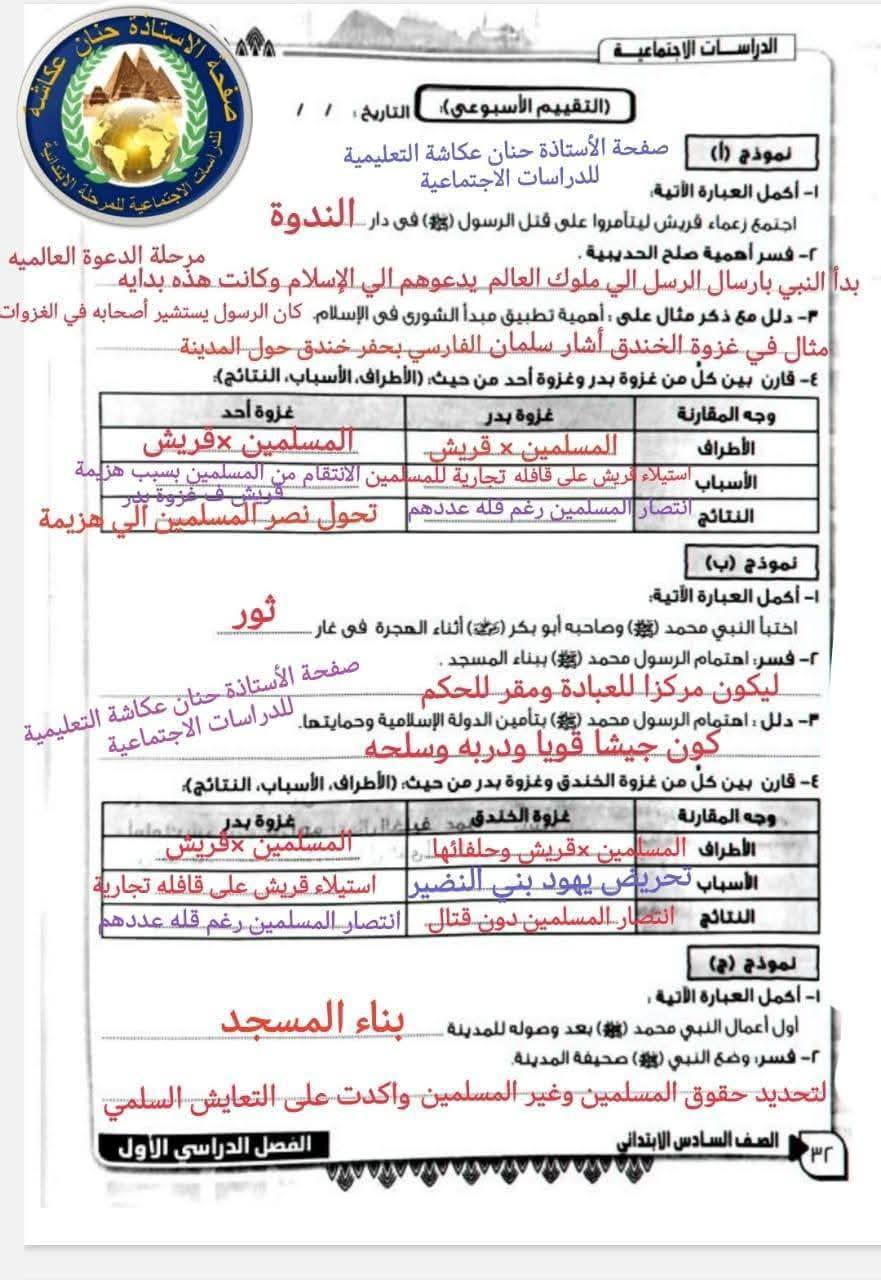 صفحة الاستاذة حنان عكاشة
للدراسات الاجتماعية للمرحلة الابتدائية
الدراسـات الاجتماعيـة
(التقييم الأسبوعي): التاريخ: / /
نموذج (أ)
صفحة الأستاذة حنان عكاشة التعليمية
للدراسات الاجتماعية
١- أكمل العبارة الآتية:
اجتمع زعماء قريش ليتآمروا على قتل الرسول (ﷺ) فى دار الندوة
٢- فسر أهمية صلح الحديبية . مرحلة الدعوة العالميه
بدأ النبي بارسال الرسل الي ملوك العالم يدعوهم الي الإسلام وكانت هذه بدايه
٣- دلل مع ذكر مثال على : أهمية تطبيق مبدأ الشورى فى الإسلام. كان الرسول يستشير أصحابه في الغزوات
مثال في غزوة الخندق أشار سلمان الفارسي بحفر خندق حول المدينة
٤- قارن بين كلٌ من غزوة بدر وغزوة أحد من حيث: (الأطراف، الأسباب، النتائج):
وجه المقارنة غزوة بدر غزوة أحد
الأطراف المسلمين × قريش المسلمين ×قريش
الأسباب استيلاء قريش على قافله تجارية للمسلمين الانتقام من المسلمين بسبب هزيمة
قريش ف غزوة بدر
النتائج انتصار المسلمين رغم قله عددهم تحول نصر المسلمين الي هزيمة
نموذج (ب)
١- أكمل العبارة الآتية:
اختبأ النبي محمد (ﷺ) وصاحبه أبو بكر أثناء الهجرة فى غار ثور
٢- فسر: اهتمام الرسول محمد (ﷺ) ببناء المسجد .
ليكون مركزا للعبادة ومقر للحكم
صفحة الأستاذة حنان عكاشة التعليمية
للدراسات الاجتماعية
٣- دلل : اهتمام الرسول محمد (ﷺ) بتأمين الدولة الإسلامية وحمايتها.
كون جيشا قويا ودربه وسلحه
٤- قارن بين كلٌ من غزوة الخندق وغزوة بدر من حيث: (الأطراف، الأسباب، النتائج):
وجه المقارنة غزوة الخندق غزوة بدر
الأطراف المسلمين ×قريش وحلفائها المسلمين ×قريش
الأسباب تحريض يهود بني النضير استيلاء قريش على قافله تجارية
النتائج انتصار المسلمين دون قتال انتصار المسلمين رغم قله عددهم
نموذج (ج)
١- أكمل العبارة الآتية :
أول أعمال النبي محمد (ﷺ) بعد وصوله للمدينة بناء المسجد
٢- فسر: وضع النبي (ﷺ) صحيفة المدينة.
لتحديد حقوق المسلمين وغير المسلمين واكدت على التعايش السلمي
٣٢ الصف السادس الابتدائي الفصل الدراسي الأول